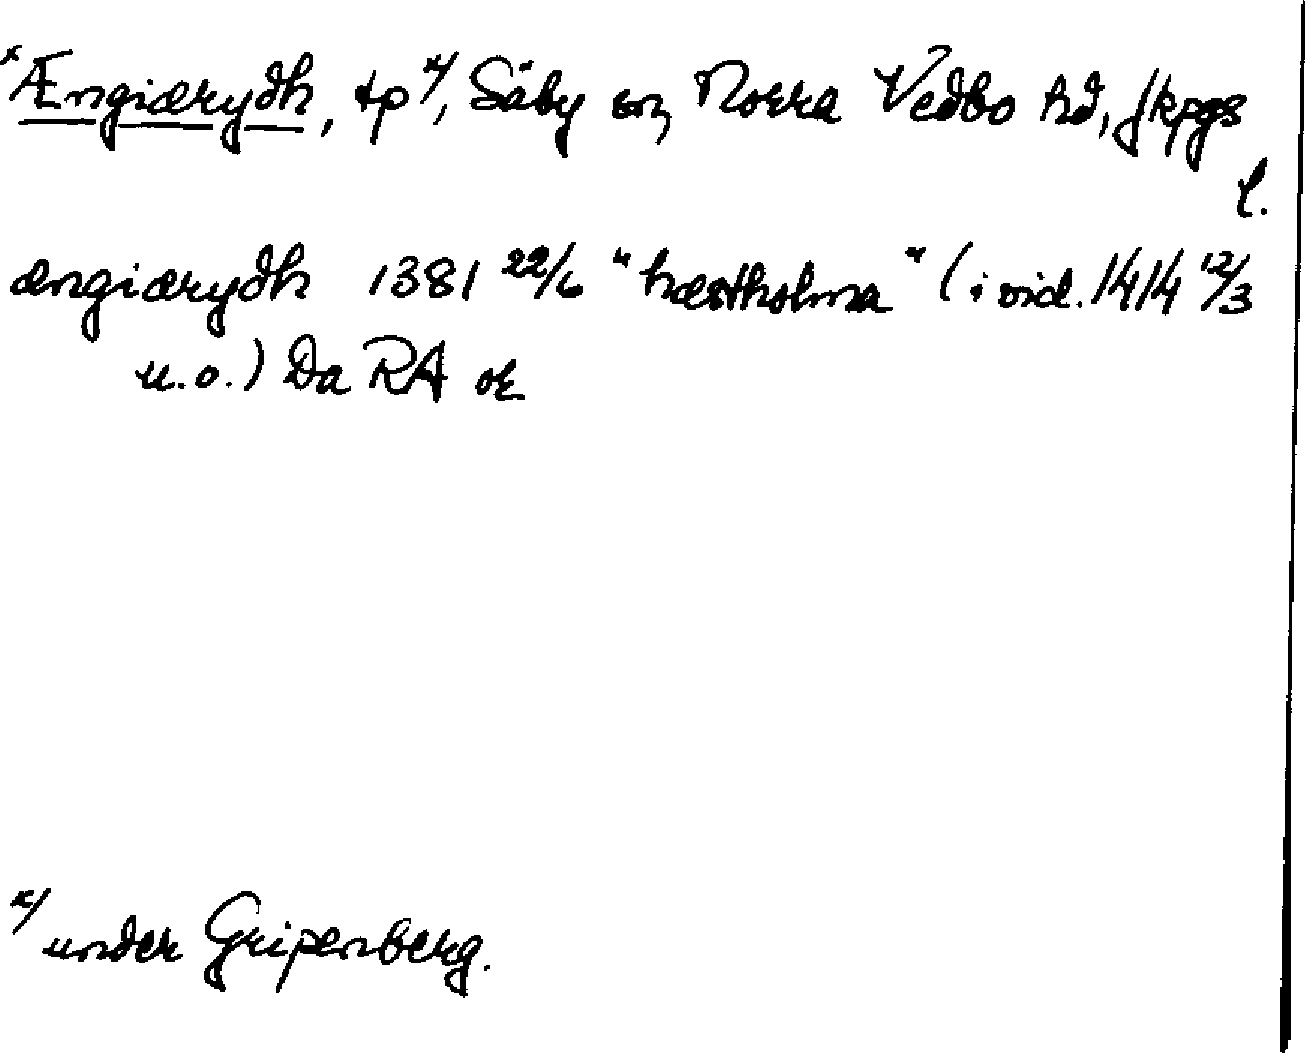 ˣÆngiærydh, tp ˣ/, Säby sn, Norra Vedbo hd, Jkpgs
l.
ængiærydh 1381 22/6 "hæstholma" (i vid. 1414 12/3
u.o.) Da RA or
ˣ/ under Gripenberg.